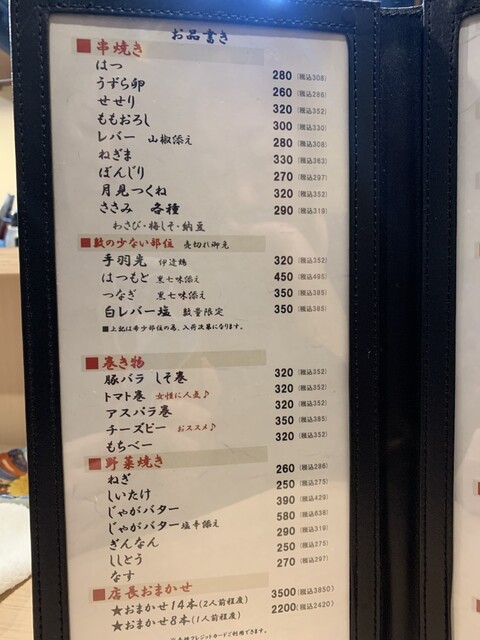 お品書き
■串焼き
はつ 280(税込308)
うずら卵 260(税込286)
せせり 320(税込352)
ももおろし 300(税込330)
レバー 山椒添え 280(税込308)
ねぎま 330(税込363)
ぼんじり 270(税込297)
月見つくね 320(税込352)
ささみ 各種 290(税込319)
わさび・梅しそ・納豆
■数の少ない部位 売切れ御免
手羽先 伊達鶏 320(税込352)
はつもと 黒七味添え 450(税込495)
つなぎ 黒七味添え 350(税込385)
白レバー塩 数量限定 350(税込385)
■上記は希少部位の為、入荷次第になります。
■巻き物
豚バラ しそ巻 320(税込352)
トマト巻 女性に人気♪ 320(税込352)
アスパラ巻 320(税込352)
チーズピー おススメ♪ 350(税込385)
もちベー 320(税込352)
■野菜焼き
ねぎ 260(税込286)
しいたけ 250(税込275)
じゃがバター 390(税込429)
じゃがバター塩辛添え 580(税込638)
ぎんなん 290(税込319)
ししとう 250(税込275)
なす 270(税込297)
■店長おまかせ
★おまかせ14本(2人前程度) 3500(税込3850)
★おまかせ8本(1人前程度) 2200(税込2420)
クレジットカードご利用できます。